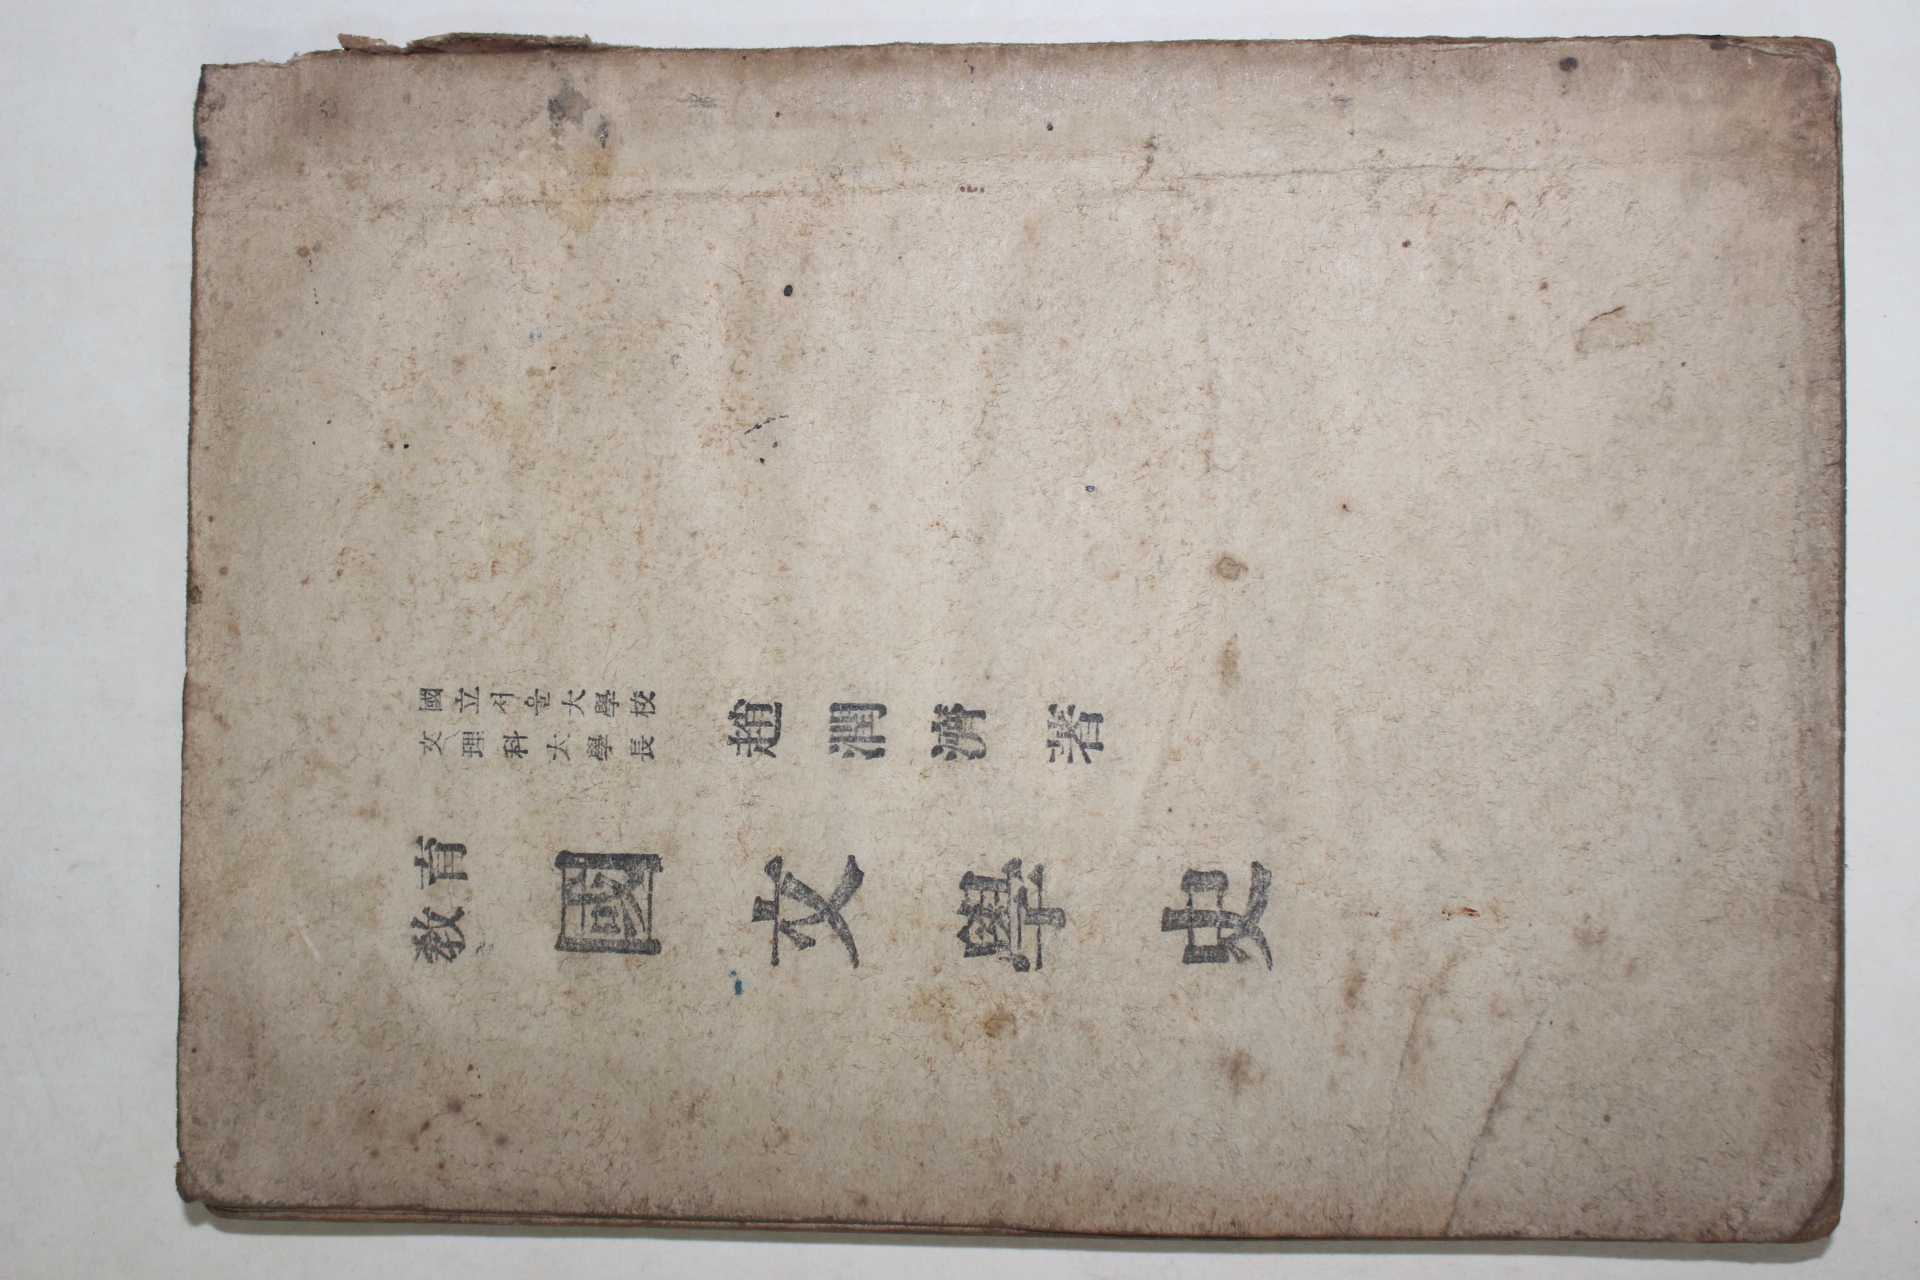 敎育
國文學史
國立서울大學校
文理科大學長
趙潤濟 著